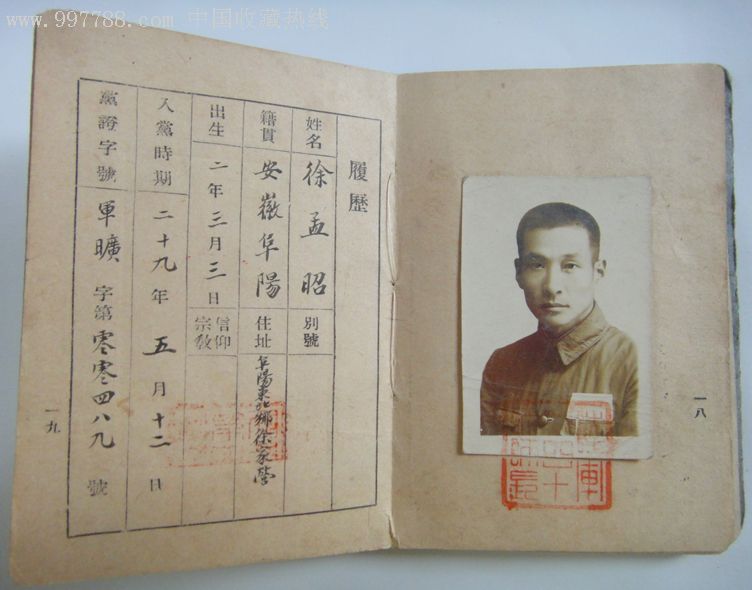 www.997788.com 中国收藏热线
一八
履歷
姓名 徐孟昭 別號
籍貫 安徽阜陽 住址 阜陽東北鄉徐家營
出生 二年三月三日 信仰宗教
入黨時期 二十九年五月十二日
黨證字號 軍曠字第零零四八九號
一九